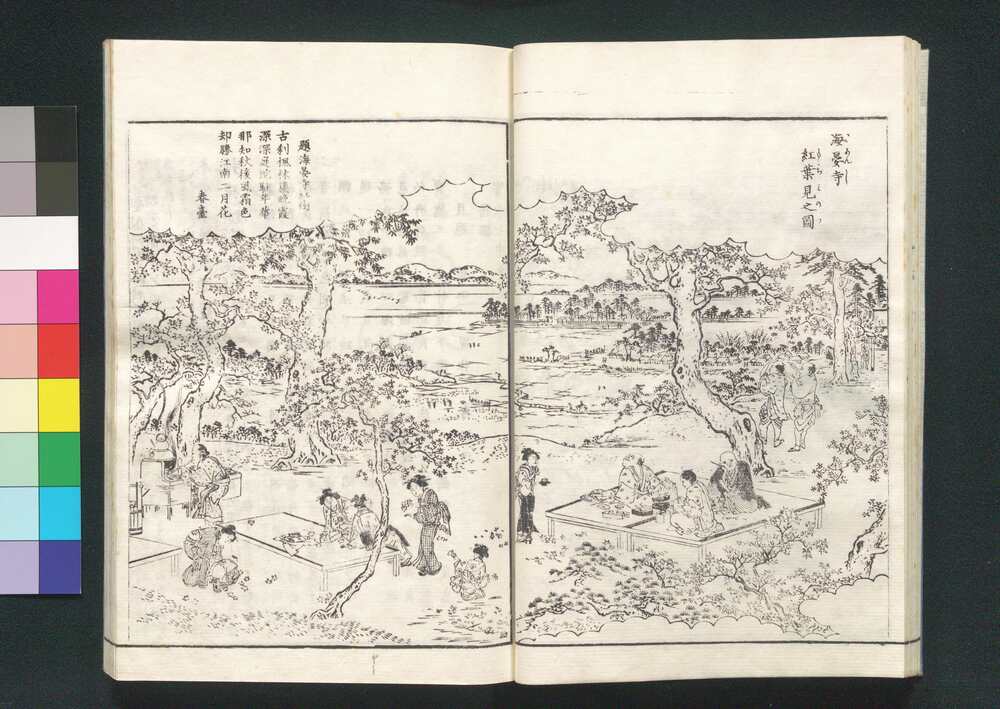 海晏寺
紅葉見之圖
題海晏寺
古刹楓林集晩霞
深深
那知秋後風霜色
却勝江南二月花
春臺